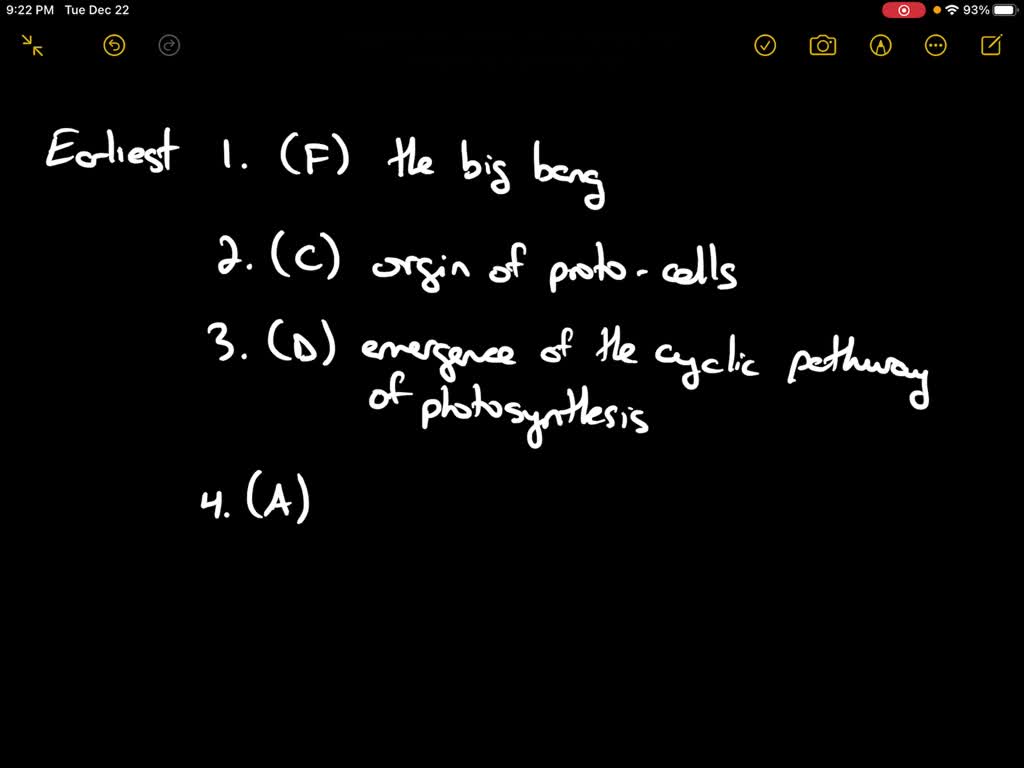 9:22 PM Tue Dec 22 93%
Earliest 1. (F) the big bang
2. (C) orgin of proto-cells
3. (D) emergence of the cyclic pathway
of photosynthesis
4. (A)